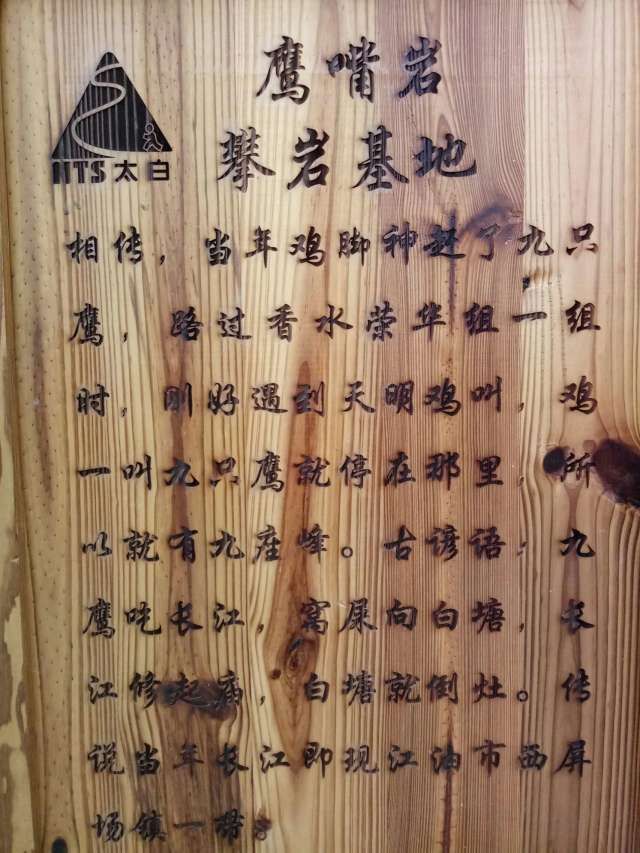 鹰嘴岩
攀岩基地
HTS太白
相传，当年鸡脚神赶了九只
鹰，路过香水荣华组一组
时，刚好遇到天明鸡叫，鸡
一叫九只鹰就停在那里，所
以就有九座峰。古谚语：九
鹰吃长江，窝屎向白塘，长
江修起庙，白塘就倒灶。传
说当年长江即现江油市西屏
场镇一带。